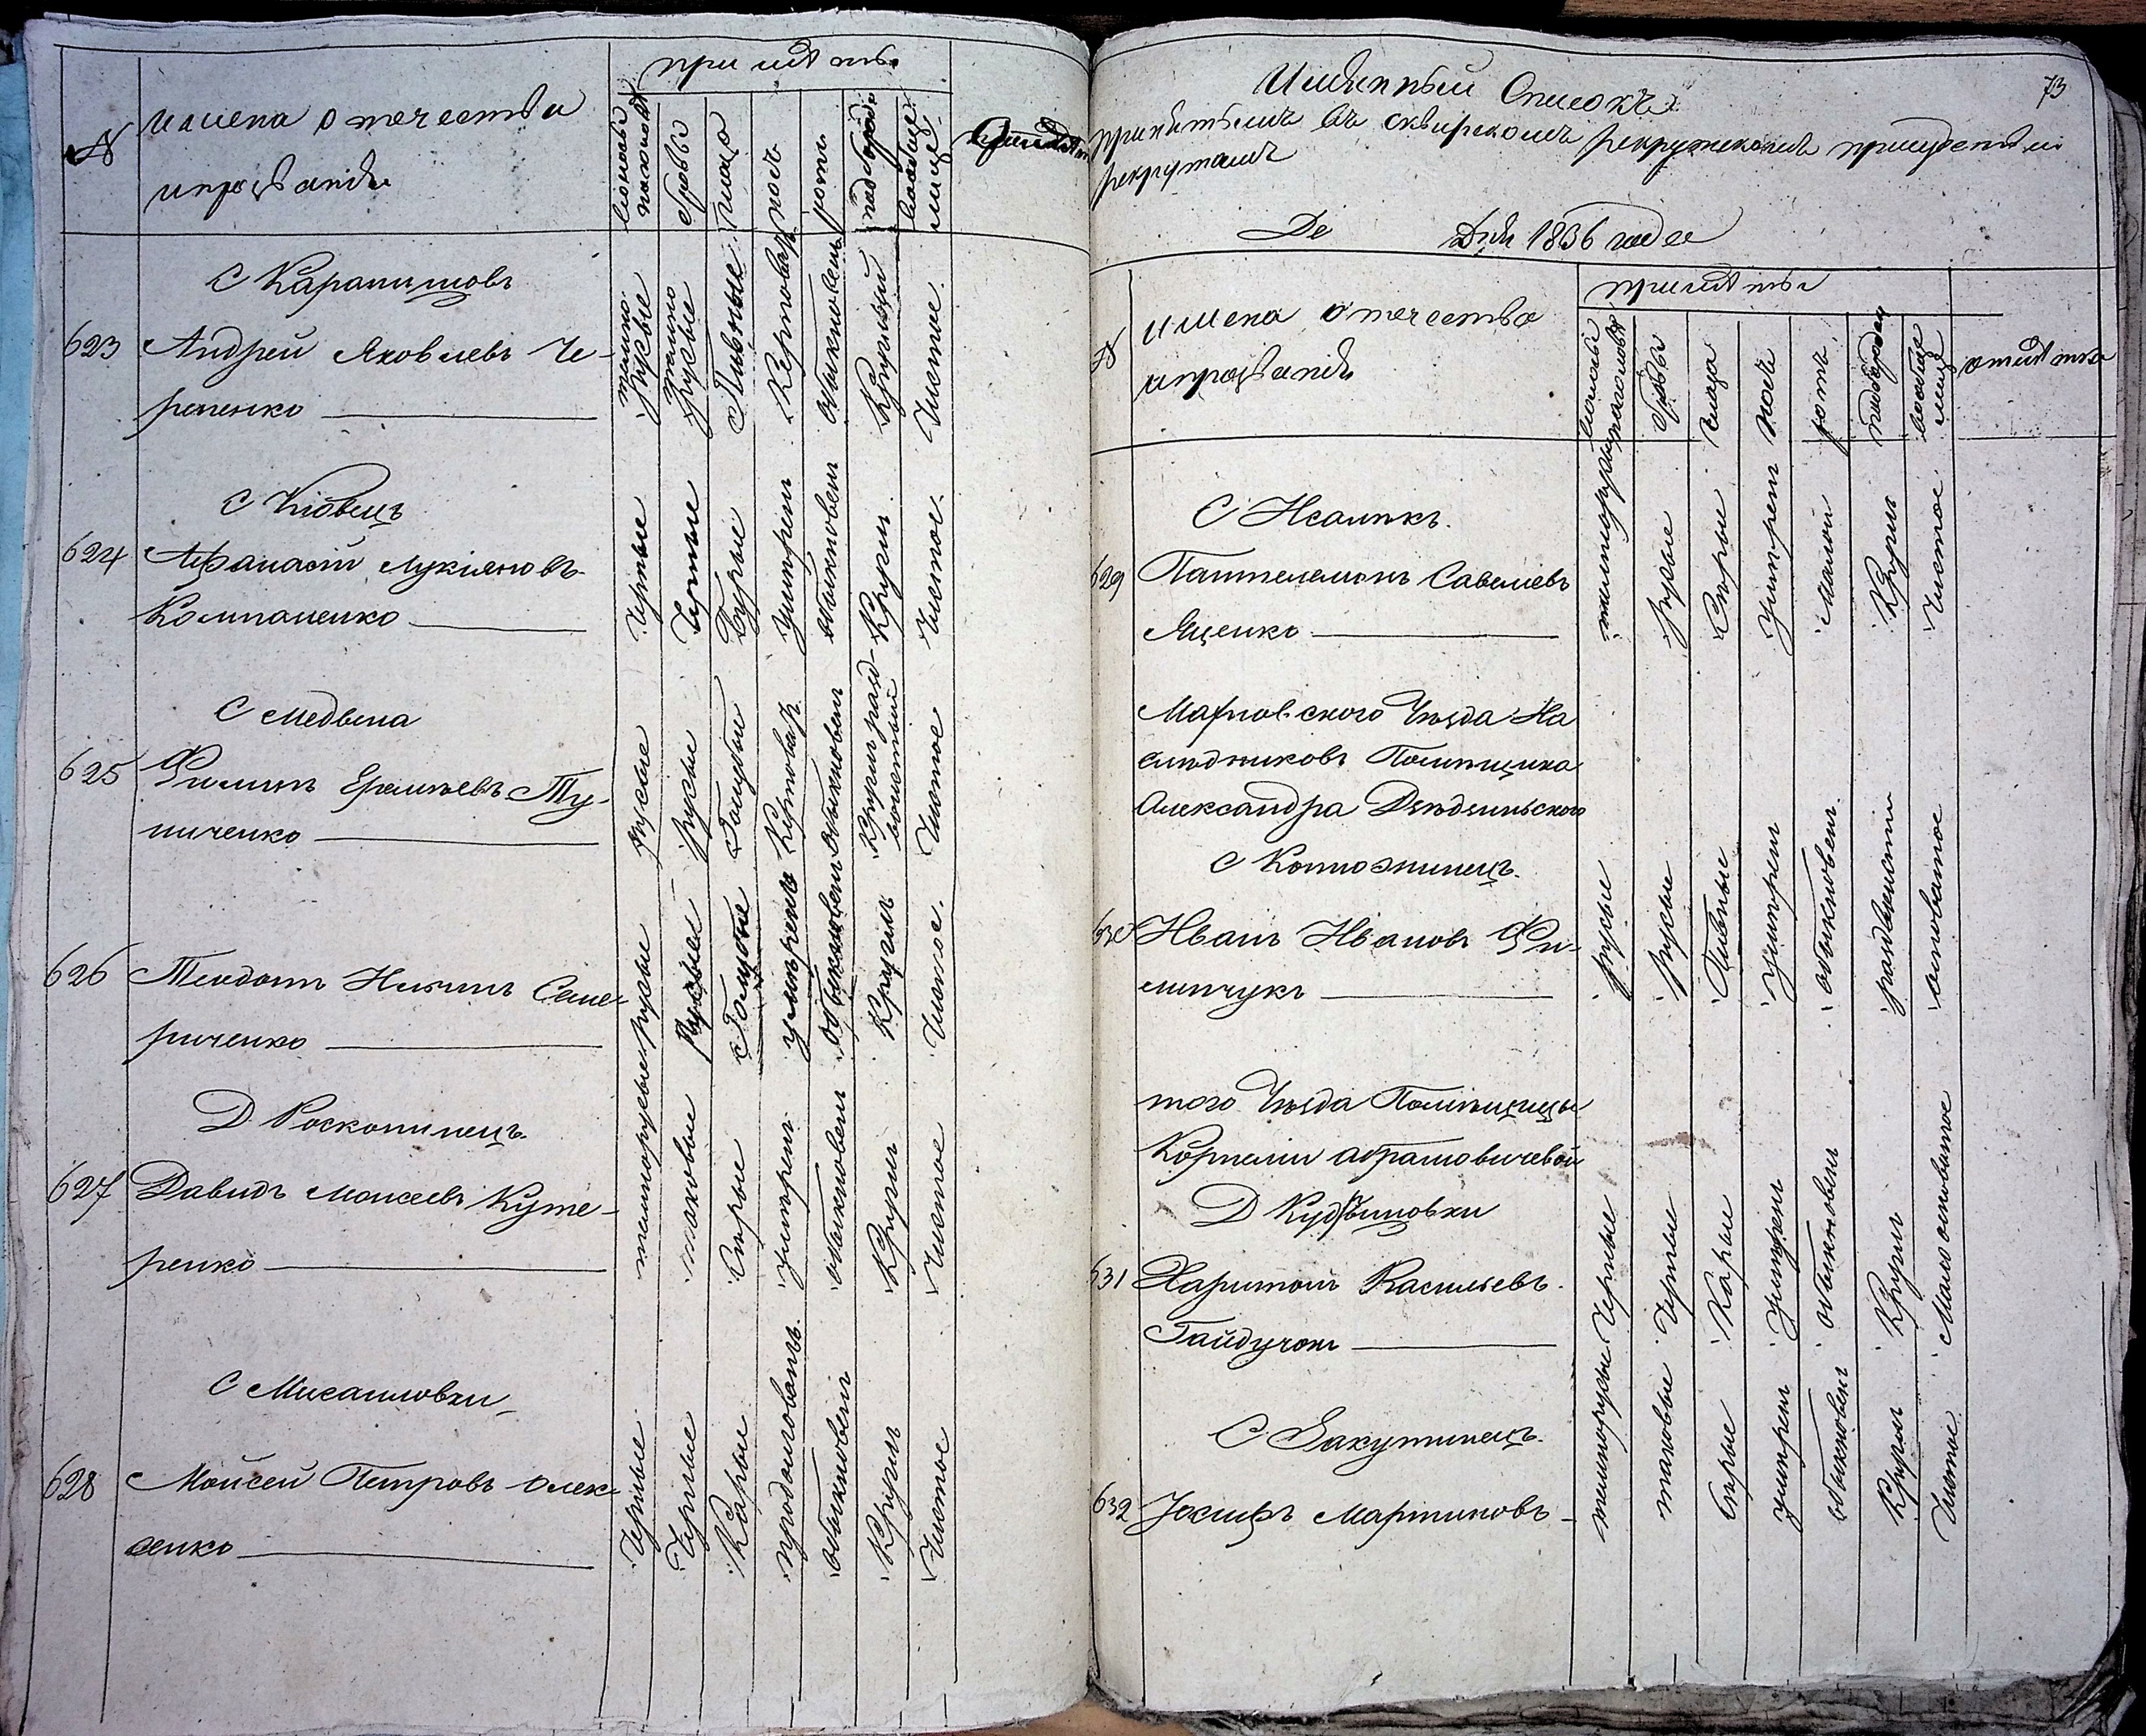 №
имена отечества
и прозванiи
приметы
волосы на головѣ
брови
глаза
носъ
ротъ
подбородок
вообще лице
С Карапишовъ
623 Андрей Яковлевъ Че-
репенко
темно русые
темно русые
Пивные
Керповатъ
обыкновенъ
Кругшый
Чистое.
С Кiовецъ
624 Афанасiй Лукiяновъ
Компанѣнко
Черные
Черные
Бурые
Умѣренъ
обыкновенъ
Круглъ
Чистое.
С Медвина
625 Филипъ Еремѣевъ Ту-
ниченко
русые
русые
Голубые
Керповатъ
обыкновенъ
Круглъ раздвоистый
Чистое
626 Теодотъ Никитинъ Семе-
риченко
темнорусые
русые
Голубые
умѣренъ
обыкновенъ
Круглъ
Чистое.
Д Роскопинецъ.
627 Давидъ Моисеевъ Куте-
ренко
темнорусые
таковые
Серые
умѣренъ
обыкновенъ
Круглъ
Чистое
С Михаиловки
628 Мойсей Петровъ Олек-
сенко
Черные
Черные
Карые
продолговатъ.
обыкновенъ
Круглъ
Чистое
73
Имянный Списокъ
принятымъ въ сквирскомъ рекрутскомъ присудствiи
рекрутамъ
Де Дня 1836 года
№
имена отечества
и прозванiи
приметы
волосы на головѣ
брови
глаза
носъ
ротъ
подбородок
вообще лице
отмѣтка
С Исаекъ.
629 Пантелемонъ Савелiевъ
Яценко
темнорусые
русые
Серые
Умѣренъ
Малой
Круглъ
Чистое
Махновского Уѣзда На
слѣдниковъ Помѣщика
Александра Дзѣдзицького
С Контожинецъ.
630 Иванъ Ивановъ Фи-
липчукъ
русые
русые
Пивные
Умѣренъ
обыкновенъ.
раздвоистъ
осповатое
того Уѣзда Помѣщицы
Корнелiи Абрамовичевой
631 Харитонъ Василiевъ.
Гайдучокъ
Черные
Черные
Карые
Умѣренъ
обыкновенъ
Круглъ
Мало осповатое
С Закутинецъ.
632 Iосифъ Мартиновъ -
темнорусы
таковые
Серые
умѣренъ
обыкновенъ
Круглъ
Чистое